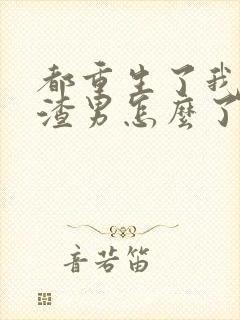 都重生了我
渣男怎麼了
音若笛